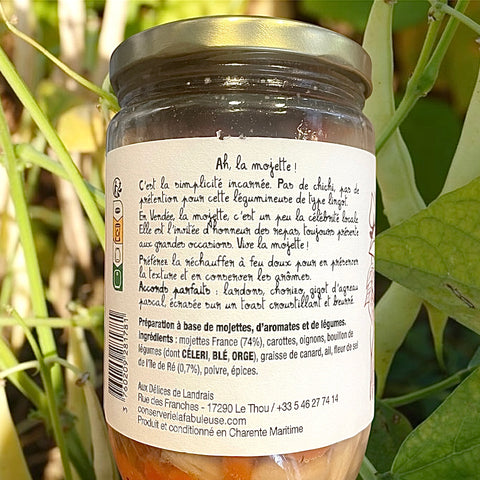 Ah, la mojette !
C'est la simplicité incarnée. Pas de chichi, pas de
prétention pour cette légumineuse de type lingot.
En Vendée, la mojette, c'est un peu la célébrité locale.
Elle est l'invitée d'honneur des repas, toujours présente
aux grandes occasions. Vive la mojette !
Préférez la réchauffer à feu doux pour en préserver
la texture et en conserver les arômes.
Accords parfaits : lardons, chorizo, gigot d'agneau
pascal, écrasée sur un toast croustillant et beurré.
Préparation à base de mojettes, d'aromates et de légumes.
Ingrédients : mojettes France (74%), carottes, oignons, bouillon de
légumes (dont CÉLERI, BLÉ, ORGE), graisse de canard, ail, fleur de sel
de l'île de Ré (0,7%), poivre, épices.
Aux Délices de Landrais
Rue des Franches - 17290 Le Thou / +33 5 46 27 74 14
conserverielafabuleuse.com
Produit et conditionné en Charente Maritime